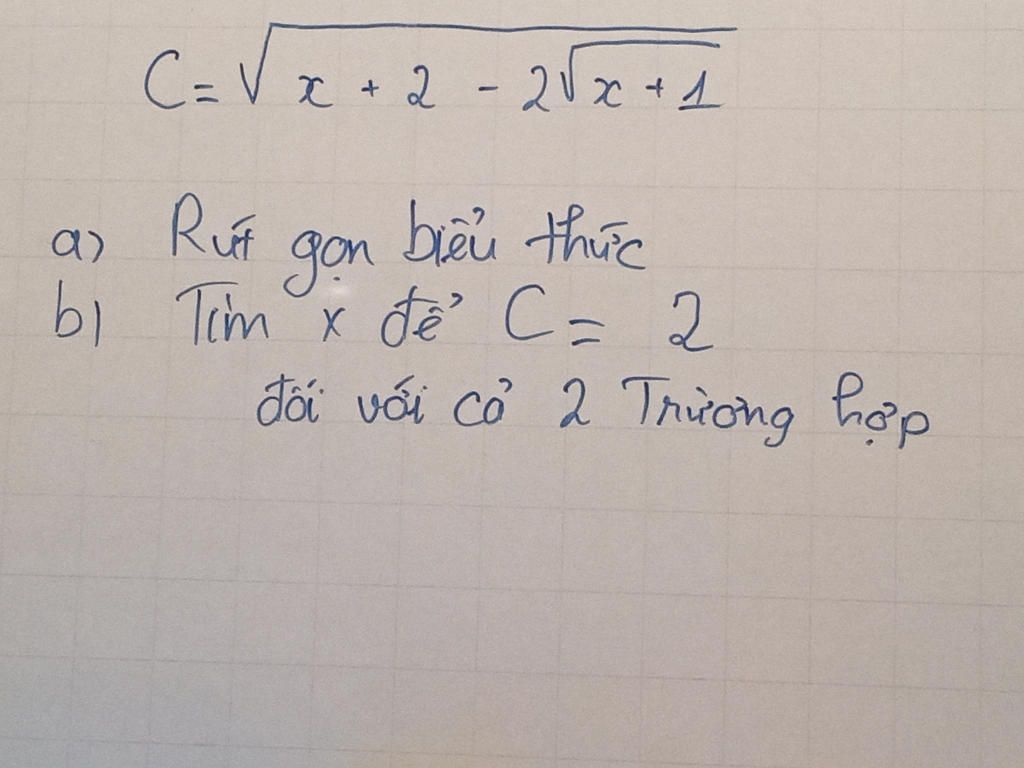 C = √(x + 2 - 2√(x + 1))
a) Rút gọn biểu thức
b) Tìm x để C = 2
đối với cả 2 Trường hợp